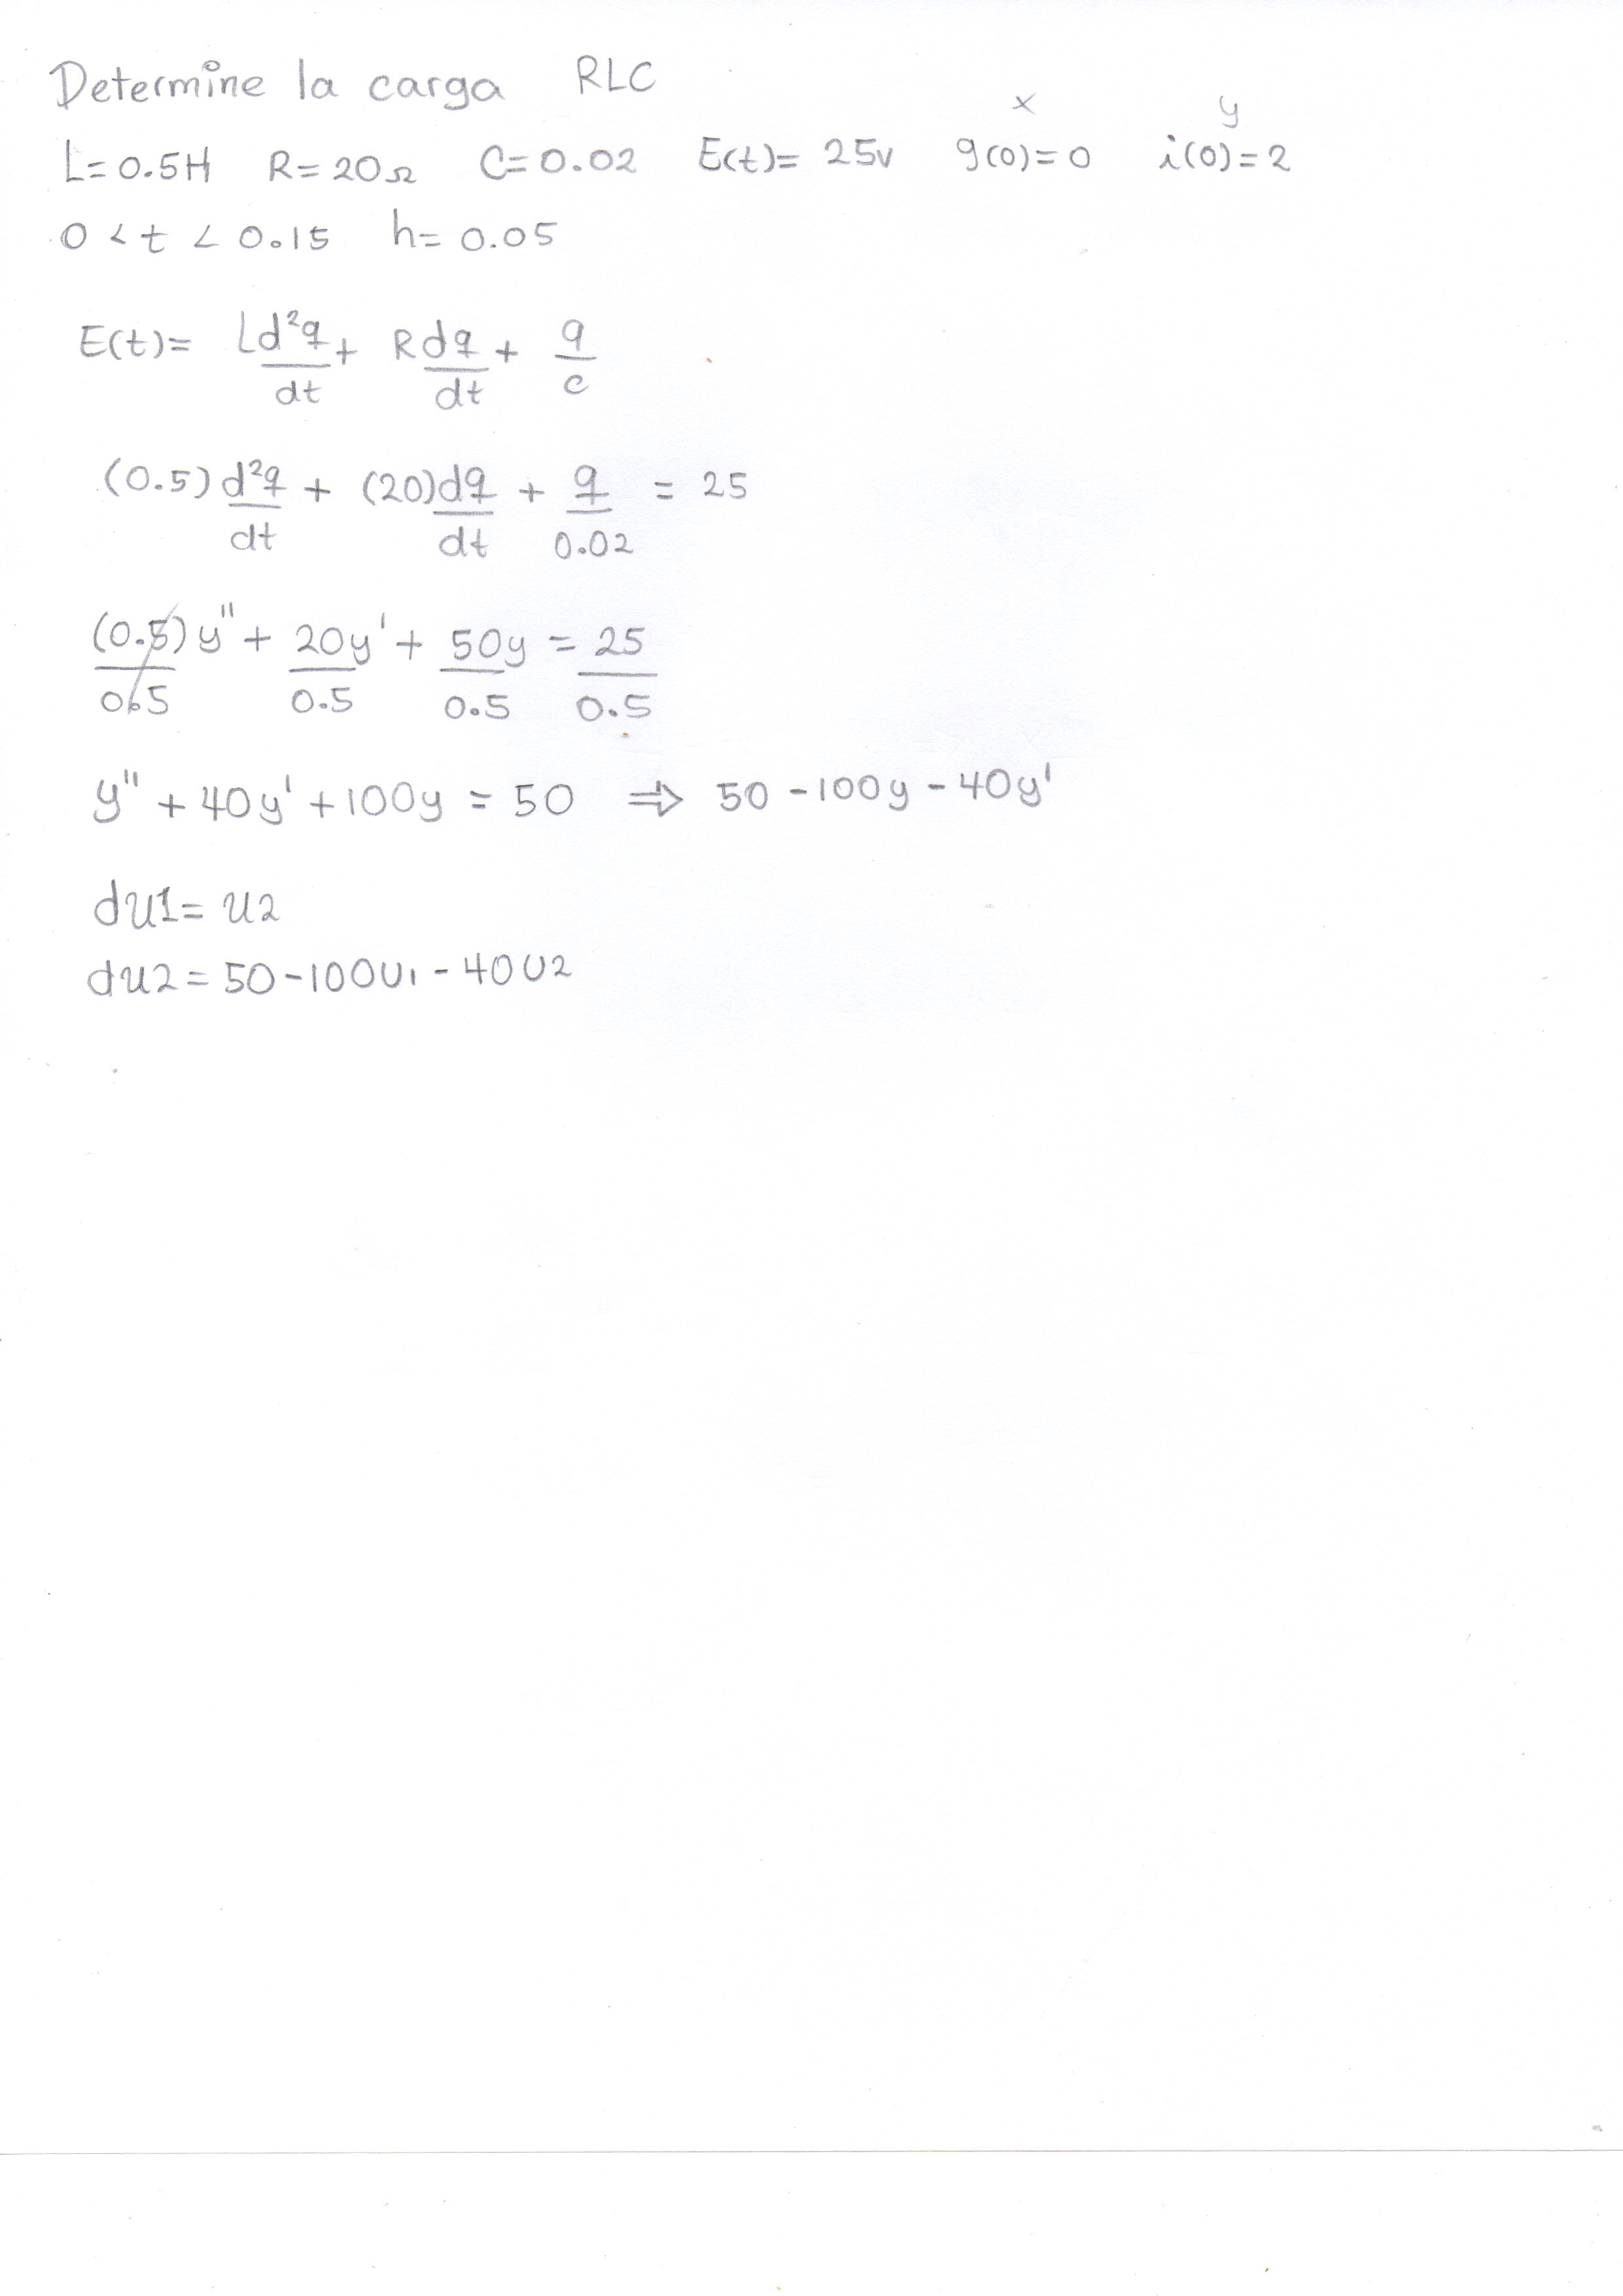 Determine la carga RLC
x y
L=0.5H R=20Ω C=0.02 E(t)=25v q(0)=0 i(0)=2
0<t<0.15 h=0.05
E(t)= Ld²q/dt + Rdq/dt + q/c
(0.5)d²q/dt + (20)dq/dt + q/0.02 = 25
(0.5)y''/0.5 + 20y'/0.5 + 50y/0.5 = 25/0.5
y'' + 40y' + 100y = 50 ⇒ 50 - 100y - 40y'
du1= u2
du2= 50-100U1 - 40U2